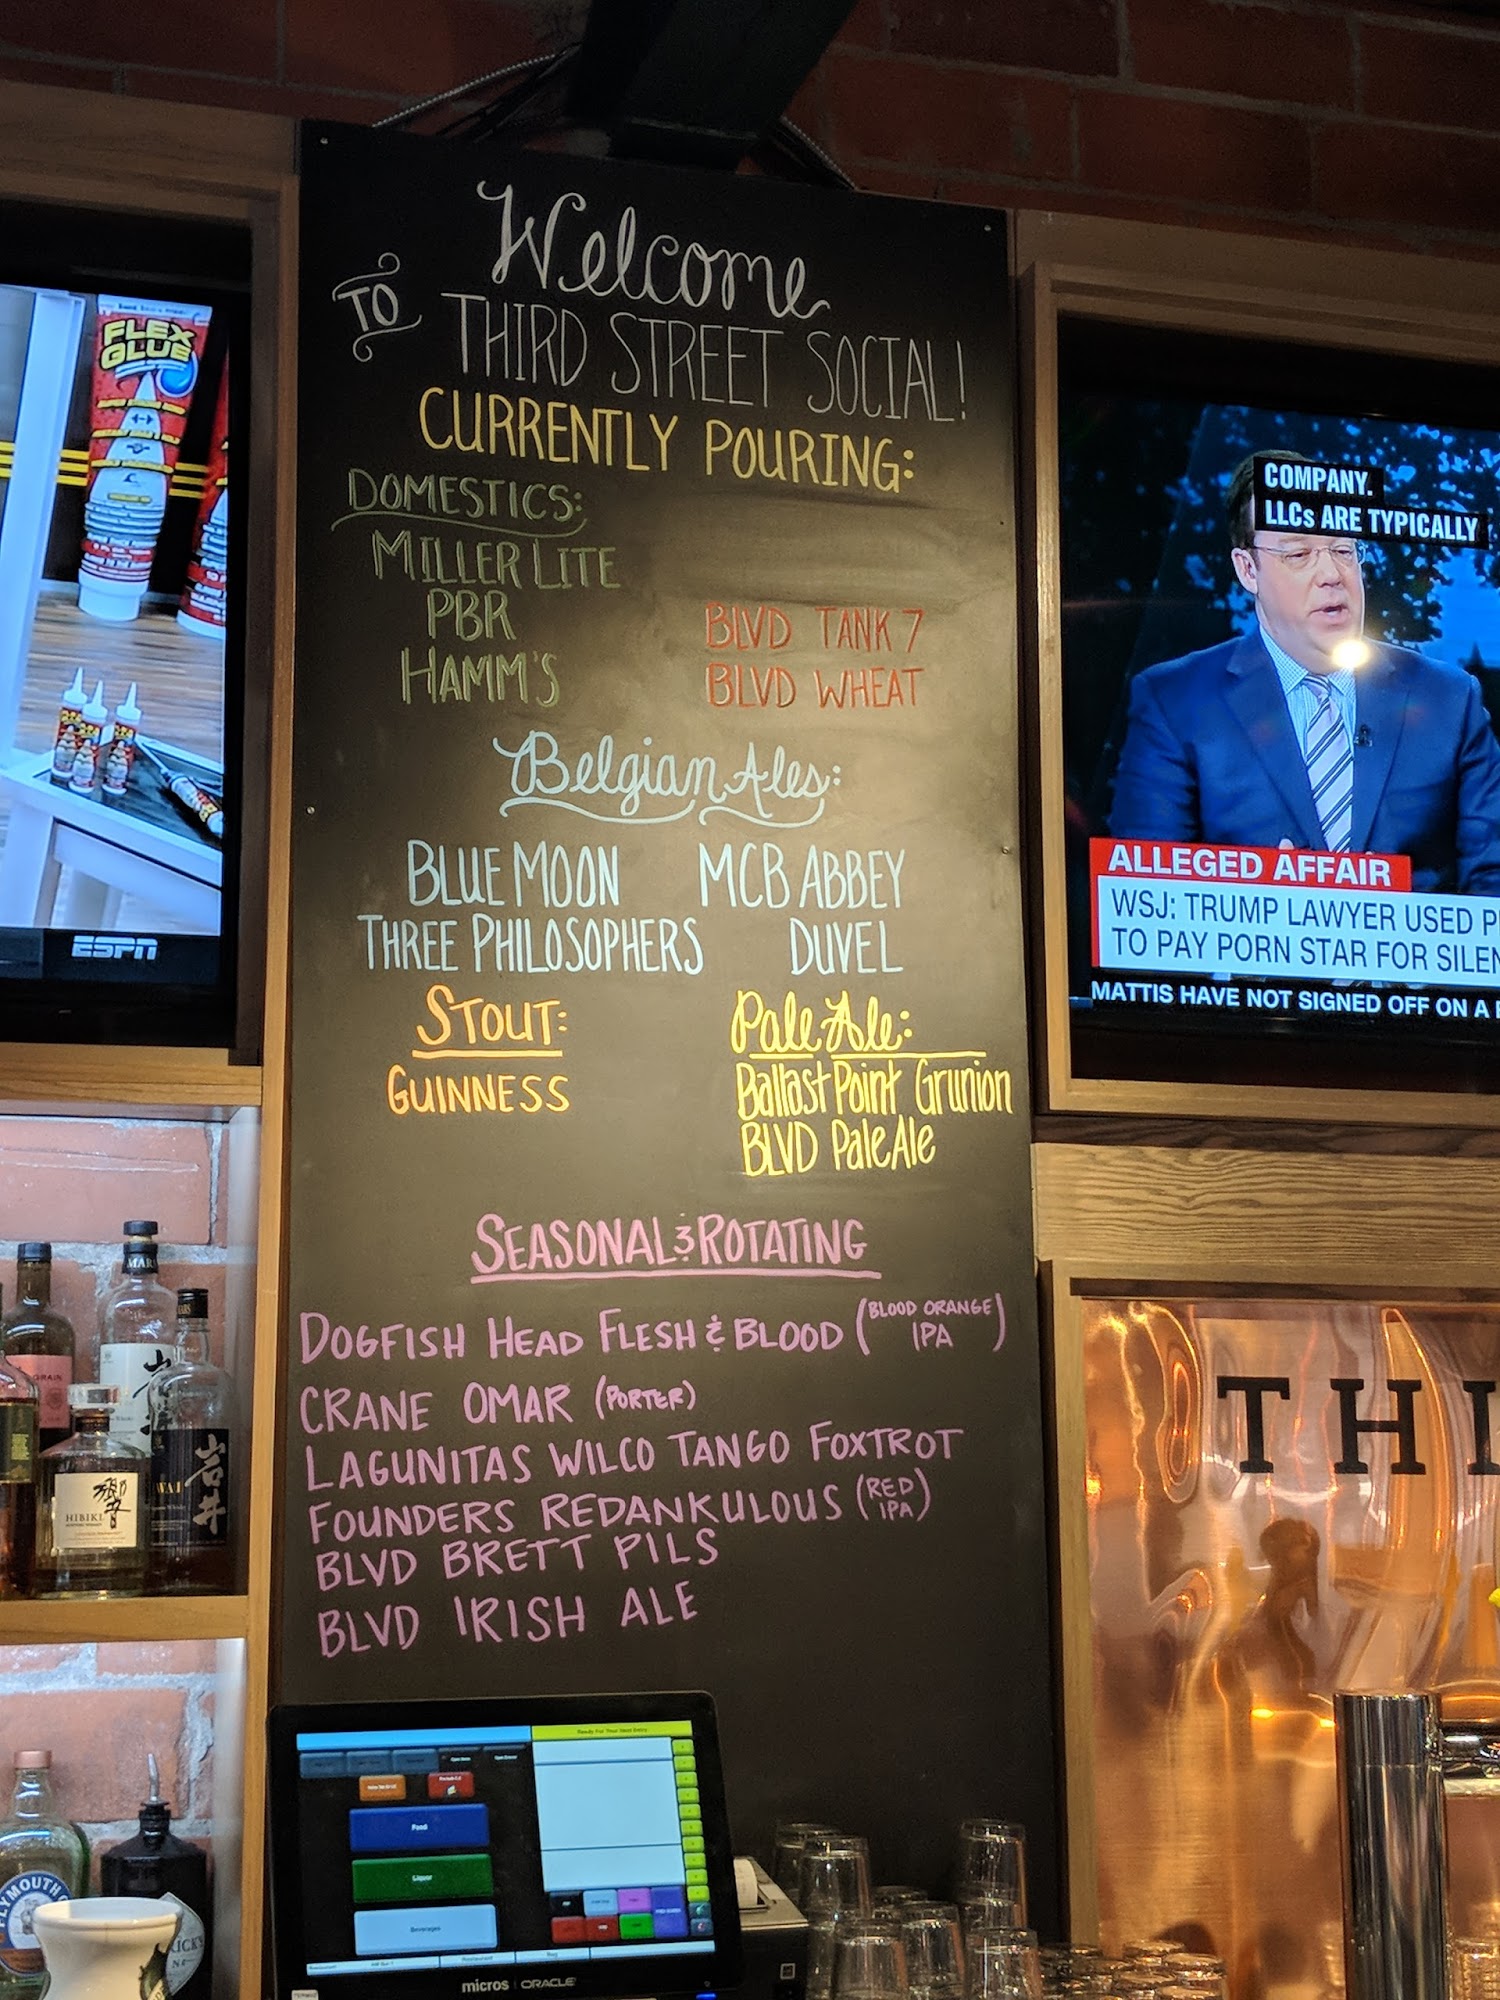 Welcome
TO THIRD STREET SOCIAL!
CURRENTLY POURING:
DOMESTICS:
MILLER LITE
PBR
HAMM'S
BLVD TANK 7
BLVD WHEAT
Belgian Ales:
BLUE MOON
THREE PHILOSOPHERS
MCB ABBEY
DUVEL
STOUT:
GUINNESS
Pale Ale:
Ballast Point Grunion
BLVD Pale Ale
SEASONAL & ROTATING
DOGFISH HEAD FLESH & BLOOD (BLOOD ORANGE IPA)
CRANE OMAR (PORTER)
LAGUNITAS WILCO TANGO FOXTROT
FOUNDERS REDANKULOUS (RED IPA)
BLVD BRETT PILS
BLVD IRISH ALE
FLEX
GLUE
ESPN
COMPANY.
LLCs ARE TYPICALLY
ALLEGED AFFAIR
WSJ: TRUMP LAWYER USED P
TO PAY PORN STAR FOR SILEN
MATTIS HAVE NOT SIGNED OFF ON A
THI
HIBIKI
響
岩井
PLYMOUTH
Food
Liquor
Beverages
micros | ORACLE